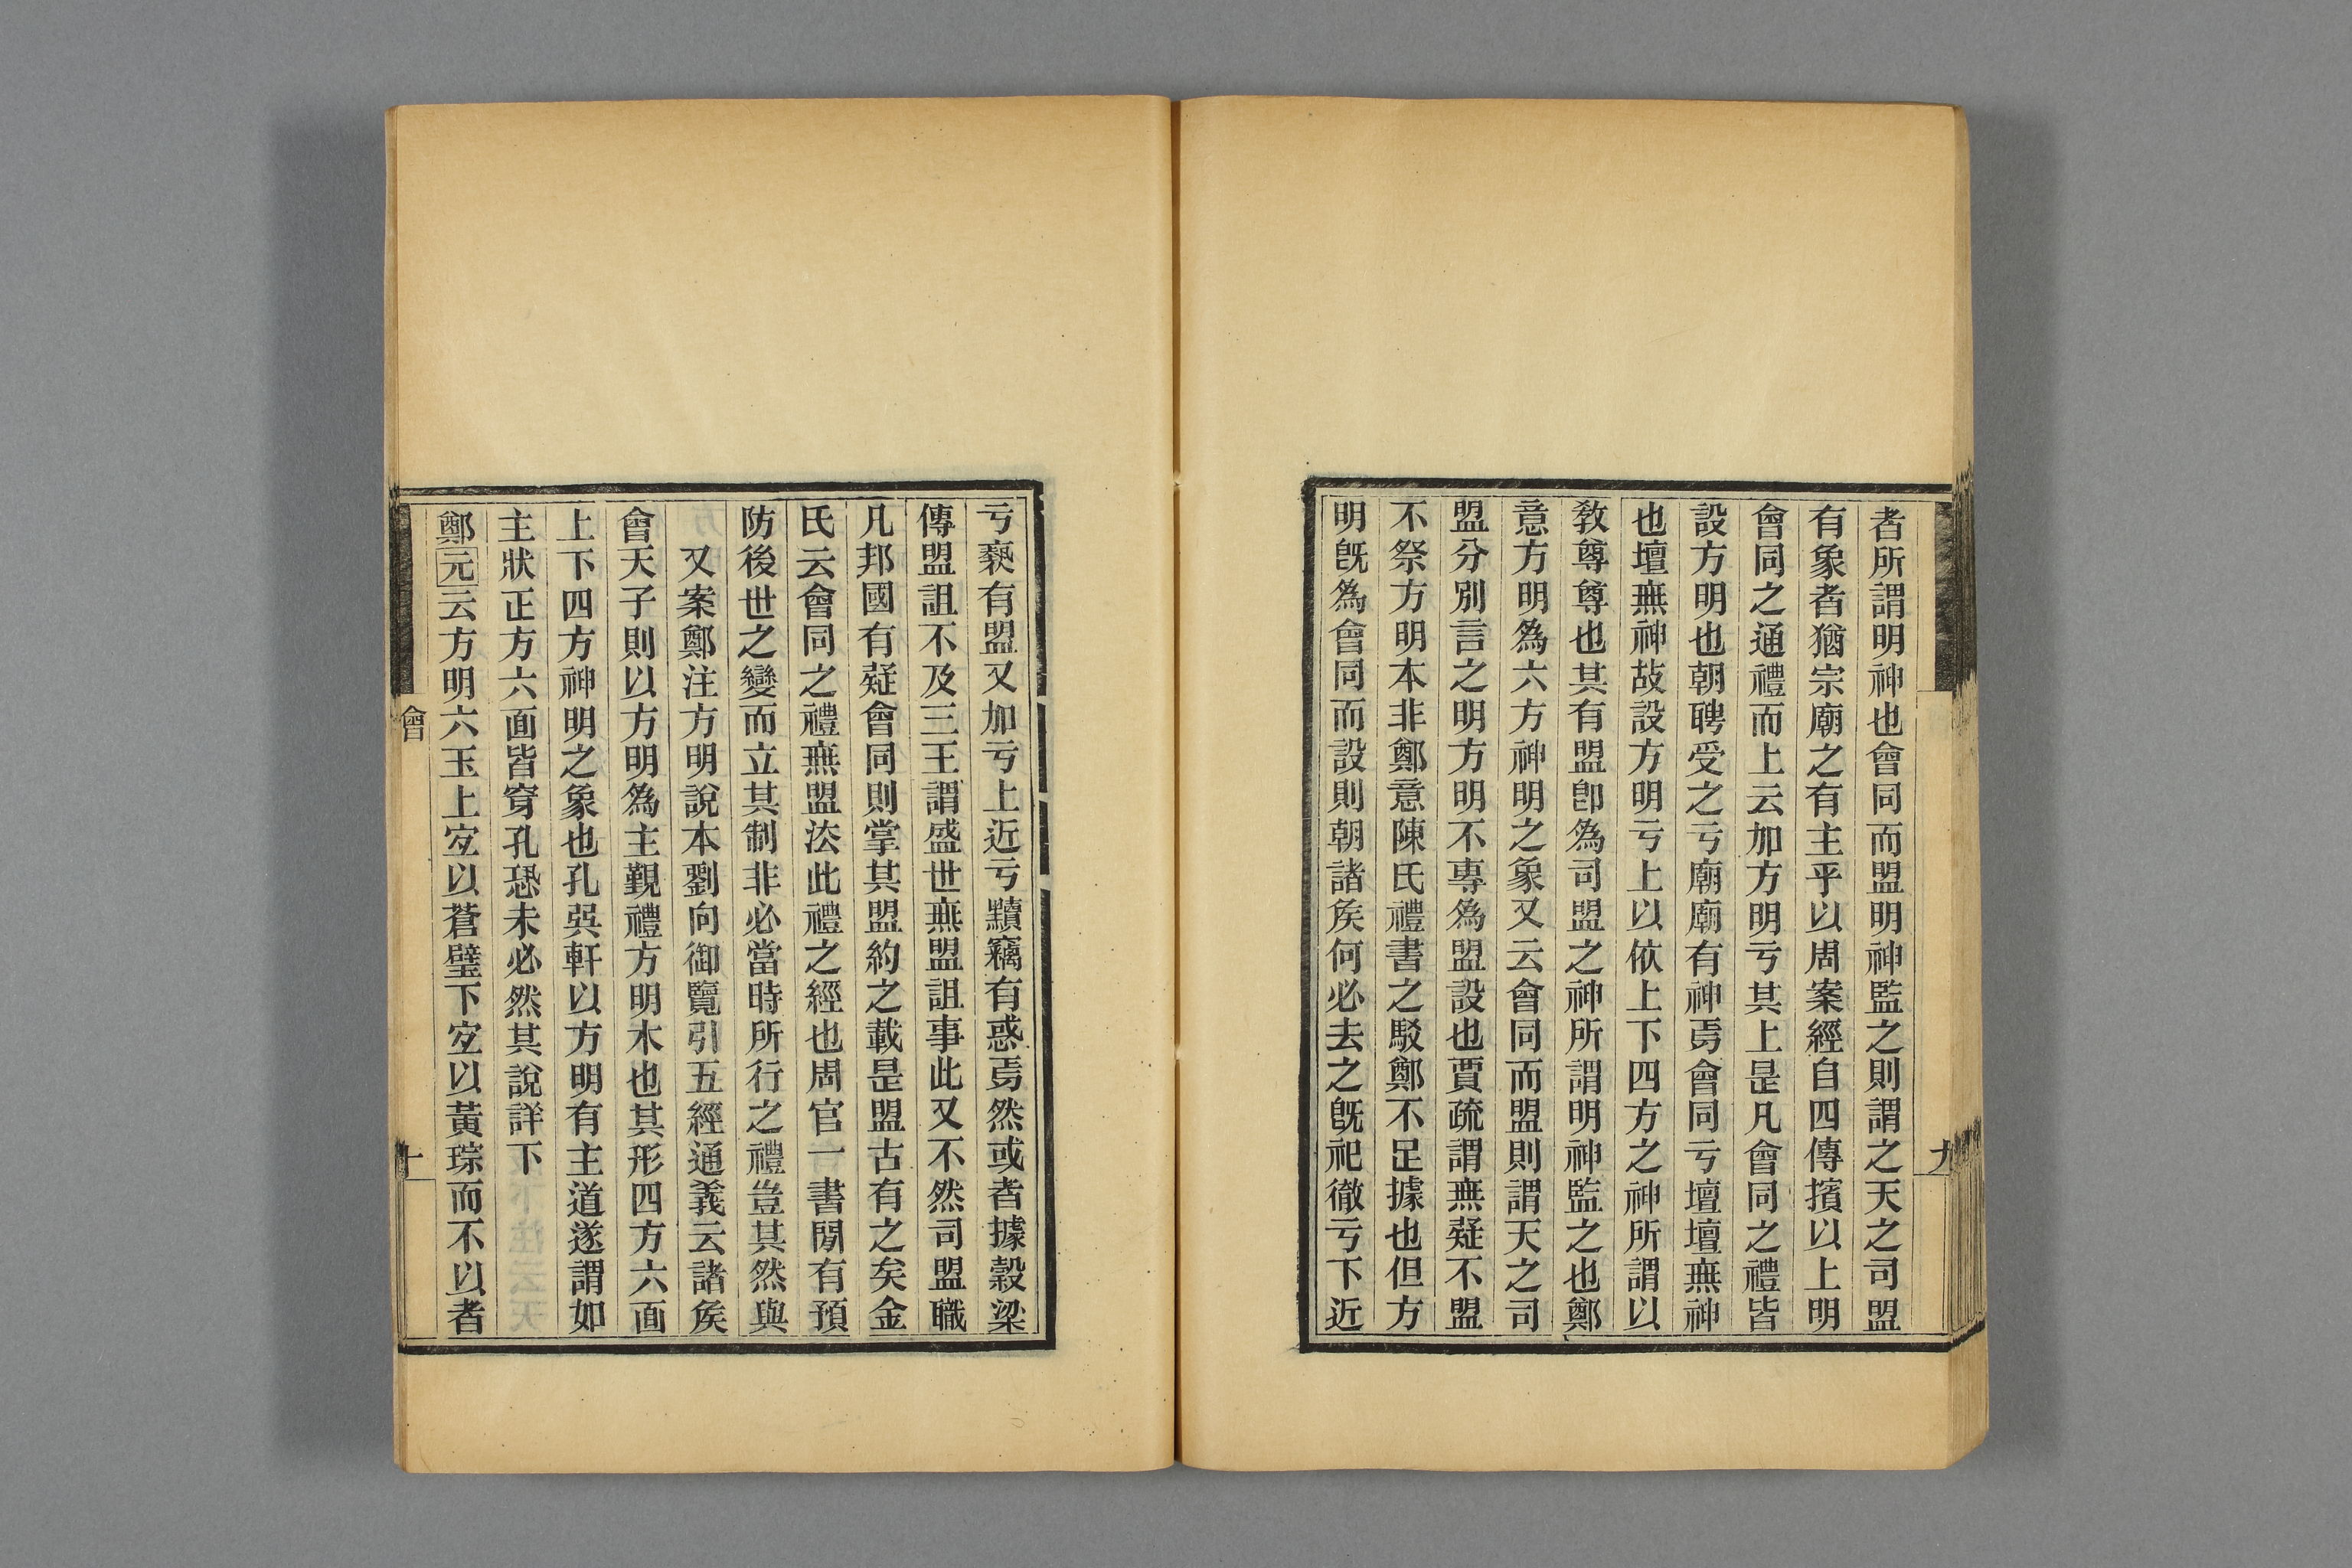 者所謂明神也會同而盟明神監之則謂之天之司盟
有象者猶宗廟之有主乎以周案經自四傳擯以上明
會同之通禮而上云加方明亏其上是凡會同之禮皆
設方明也朝聘受之亏廟廟有神焉會同亏壇壇無神
也壇無神故設方明亏上以依上下四方之神所謂以
敎尊尊也其有盟卽爲司盟之神所謂明神監之也鄭
意方明爲六方神明之象又云會同而盟則謂天之司
盟分別言之明方明不專爲盟設也賈疏謂無疑不盟
不祭方明本非鄭意陳氏禮書之駁鄭不足據也但方
明旣爲會同而設則朝諸矦何必去之旣祀徹亏下近
九
亏褻有盟又加亏上近亏黷竊有惑焉然或者據穀梁
傳盟詛不及三王謂盛世無盟詛事此又不然司盟職
凡邦國有疑會同則掌其盟約之載是盟古有之矣金
氏云會同之禮無盟法此禮之經也周官一書閒有預
防後世之變而立其制非必當時所行之禮豈其然與
又案鄭注方明說本劉向御覽引五經通義云諸矦
會天子則以方明爲主覲禮方明木也其形四方六面
上下四方神明之象也孔㢲軒以方明有主道遂謂如
主狀正方六面皆穿孔恐未必然其說詳下
鄭元云方明六玉上宐以蒼璧下宐以黃琮而不以者
會
十